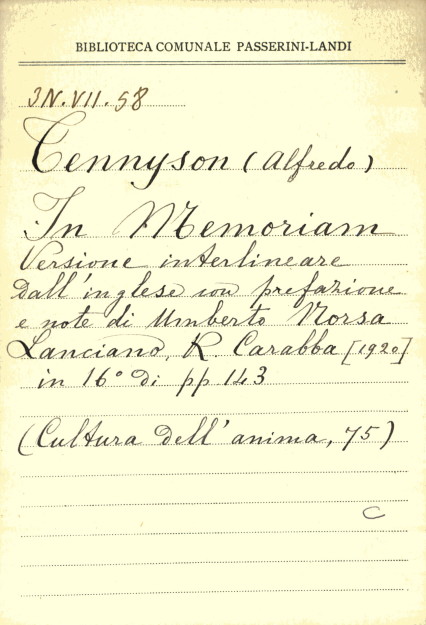 BIBLIOTECA COMUNALE PASSERINI-LANDI
3N.VII.58
Tennyson (Alfredo)
In Memoriam
Versione interlineare
dall'inglese con prefazione
e note di Umberto Norsa
Lanciano, R. Carabba [1920]
in 16° di pp 143
(Cultura dell'anima, 75)
C